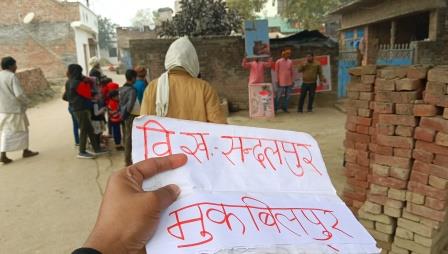 वि.स:- सन्दलपुर
मुकबिलपुर